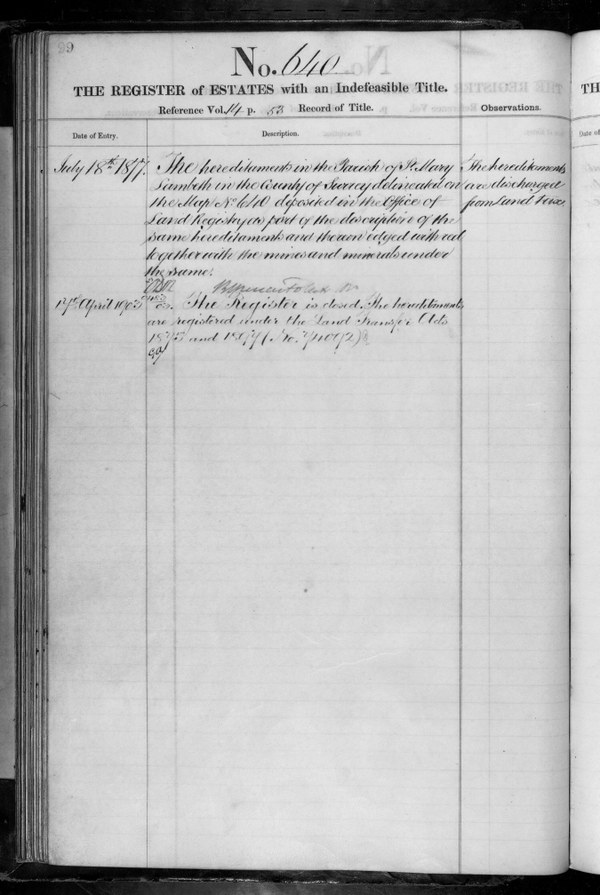 99
No. 640
THE REGISTER of ESTATES with an Indefeasible Title.
Reference Vol. 14 p. 53 Record of Title.
Observations.
Date of Entry.
Description.
July 18th 1877.
The hereditaments in the Parish of St. Mary
Lambeth in the County of Surrey delineated on
the Map No 640 deposited in the Office of
Land Registry as part of the description of the
same hereditaments and thereon edged with red
together with the mines and minerals under
the same.
The hereditaments
are discharged
from Land Tax
17th April 1903
The Register is closed. The hereditaments
are registered under the Land Transfer Acts
1875 and 1897 (No.